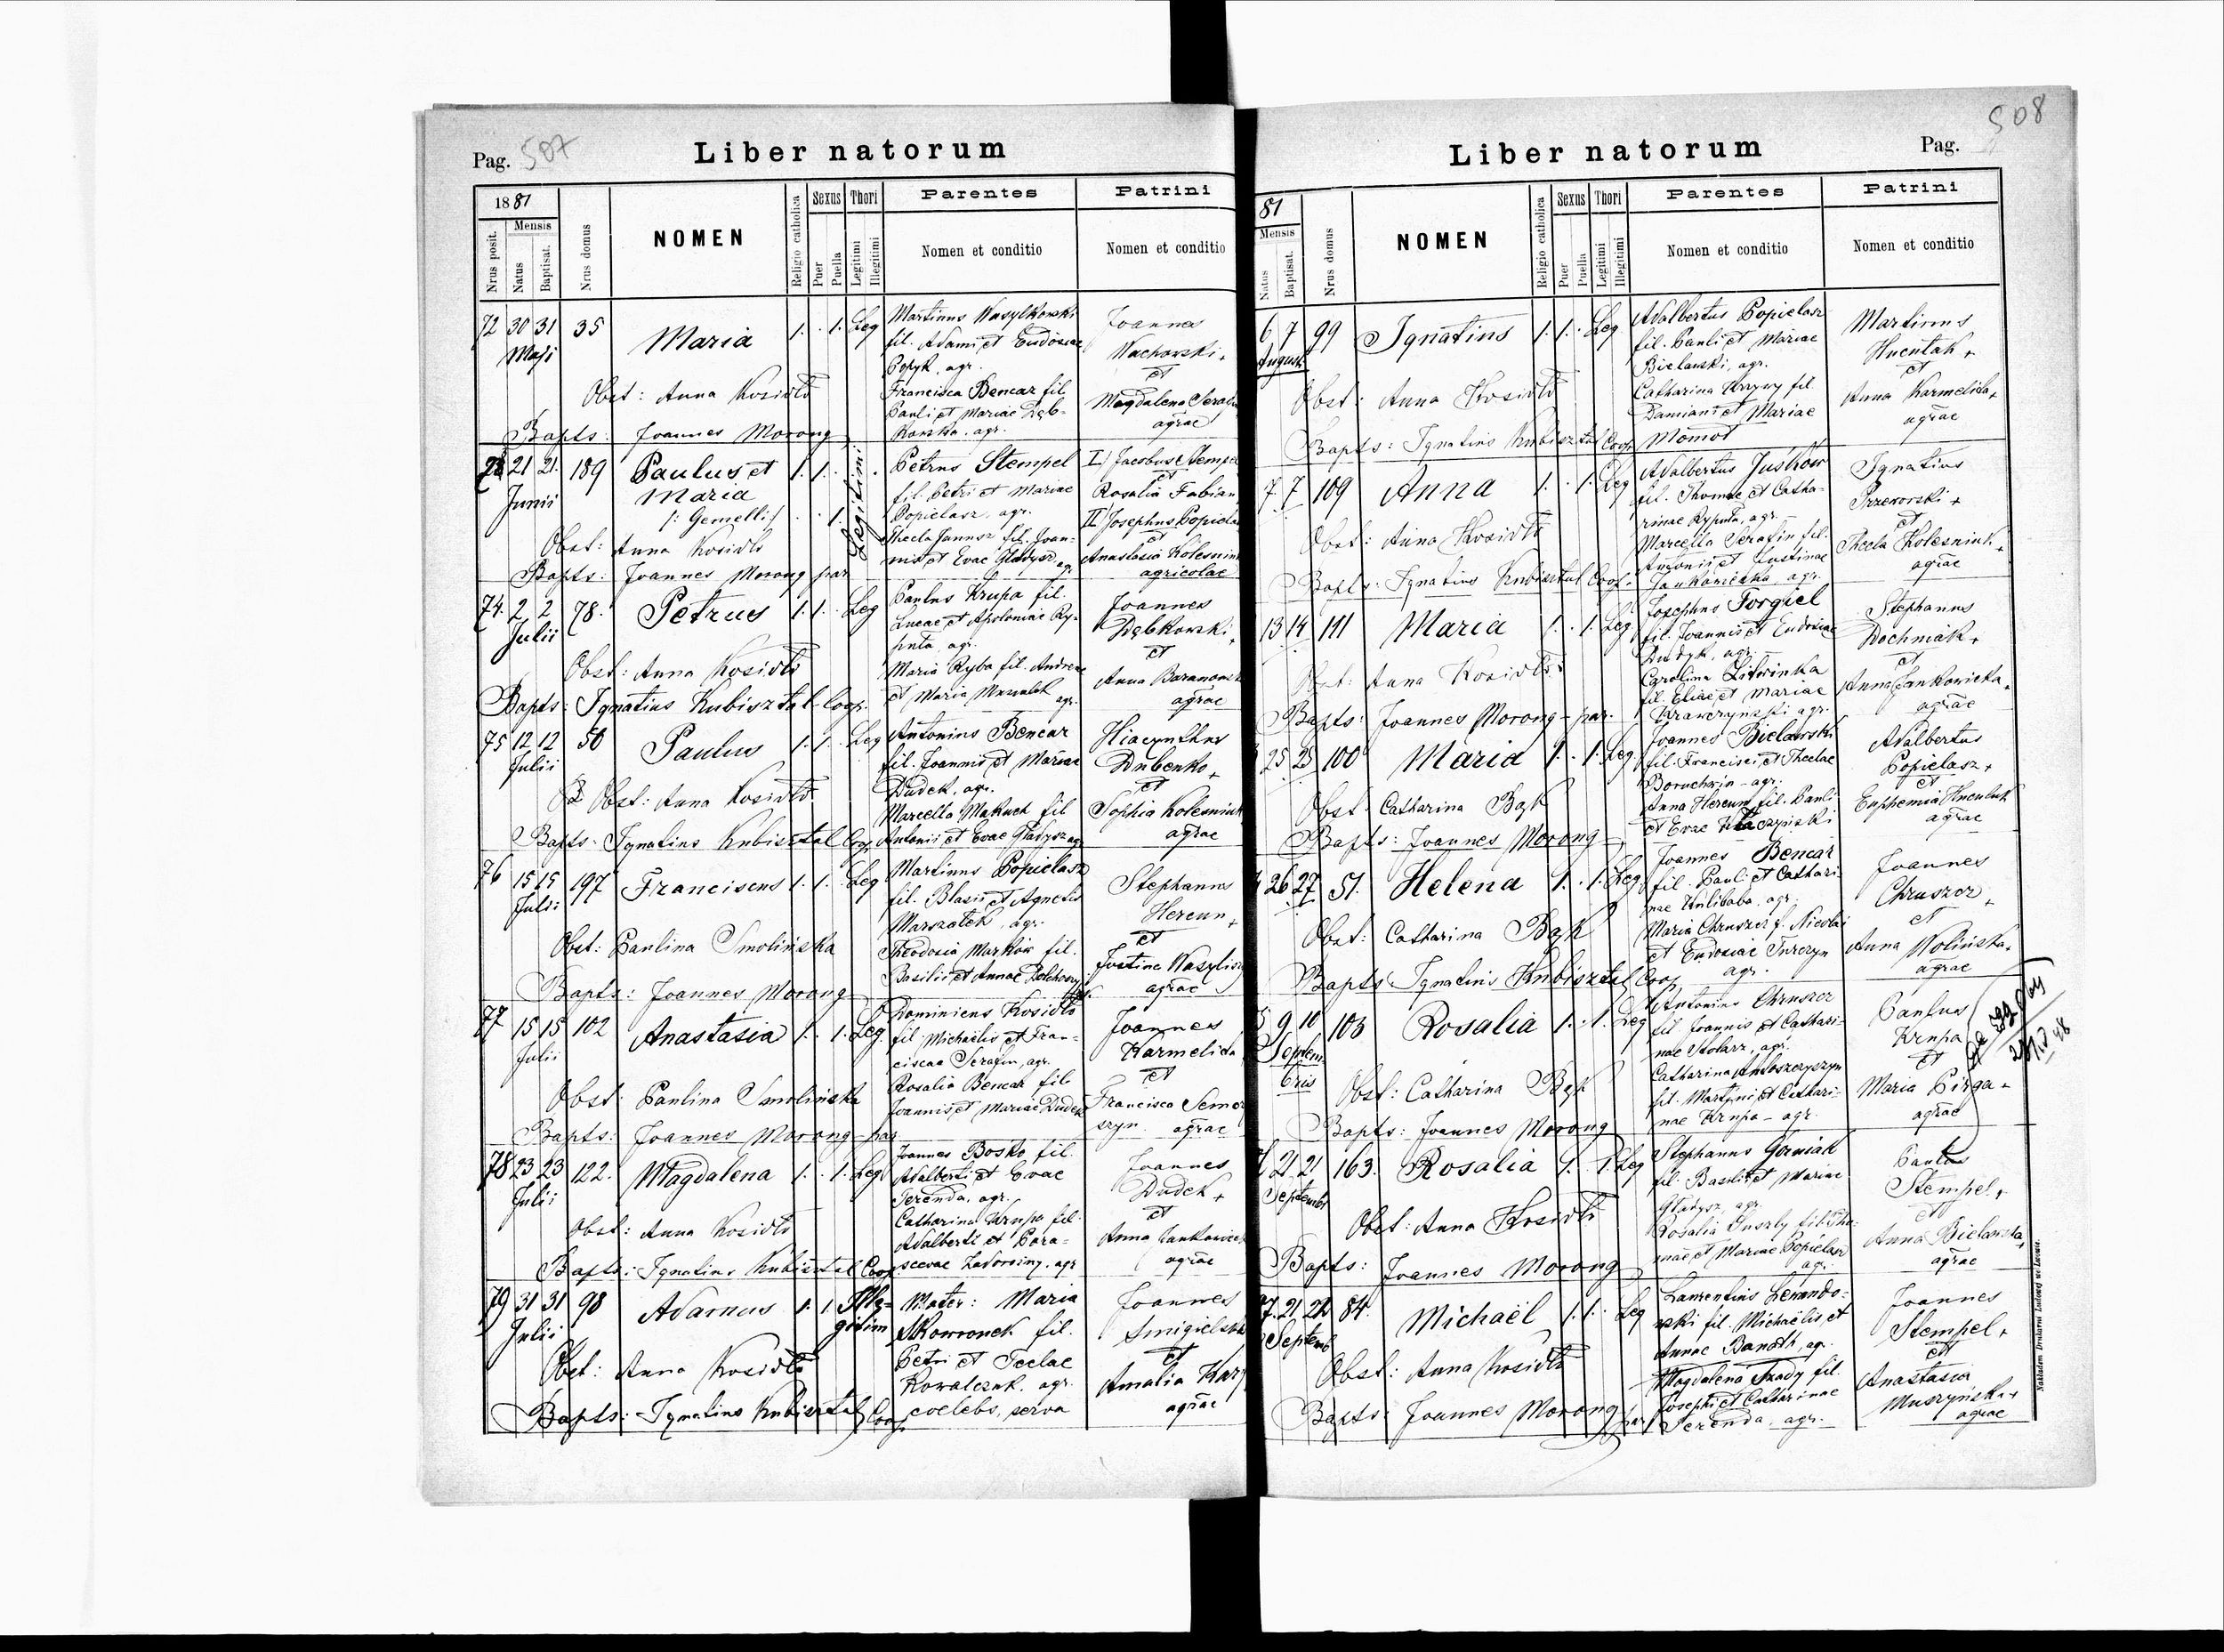 Pag. 507
Liber natorum
1881
Mensis
Nrus posit.
Natus
Baptisat.
Nrus domus
NOMEN
Religio catholica
Sexus
Puer
Puella
Thori
Legitimi
Illegitimi
Parentes
Nomen et conditio
Patrini
Nomen et conditio
72 30 31 35 Maria 1. . 1. Leg
Maji
Martinus Wasylkowski
fil. Adami et Eudosiae
Popyk, agr.
Francisca Bencar fil.
Pauli et Mariae Dęb-
kowska, agr.
Joannes
Wachowski +
et
Magdalena
agrae
Obst: Anna Kosidło
Bapts: Joannes Morong
73 21 21 189 Paulus et
Junii
Maria
/: Gemelli :/
1. 1. .
. 1.
Legitimi
Petrus Stempel
fil. Petri et Mariae
Popielasz, agr.
Thecla Janusz fil. Joan-
nis et Evae Gładysz agr
I/ Jacobus
et
Rosalia
II/ Josephus
et
Anastasia
agricolae
Obst: Anna Kosidło
Bapts: Joannes Morong par
74. 2 2 78. Petrus 1. 1. Leg
Julii
Paulus Krupa fil.
Lucae et Apoloniae Ry-
puta, agr.
Maria Ryba fil. Andreae
et Maria agr.
Joannes
Dębkowski +
et
Anna
agrae
Obst: Anna Kosidło
Bapts: Ignatius Kubisztal Coop.
75 12 12 50 Paulus 1. 1. Leg
Julii
Antonius Bencar
fil. Joannis et Mariae
Dudek, agr.
Marcella Makuch fil
Antonii et Evae Gładysz agr
Hiacynthus
Dubenko +
et
Sophia
agrae
Obst: Anna Kosidło
Bapts: Ignatius Kubisztal Coop.
76 15 15 197 Franciscus 1. 1. Leg
Julii
Martinus Popielasz
fil. Blasii et Agnetis
Marszałek, agr.
Theodosia Markow fil.
Basilii et Annae
Stephanus
Hercun +
et
Justina
agrae
Obst: Paulina Smolińska
Bapts: Joannes Morong
77 15 15 102 Anastasia 1. . 1. Leg.
Julii
Dominicus Kosidło
fil. Michaelis et Fran-
ciscae Serafin, agr.
Rosalia Bencar fil.
Joannis et Mariae Dudek
Joannes
Karmelida
et
Francisca
szyn agrae
Obst: Paulina Smolińska
Bapts: Joannes Morong - par
78 23 23 122. Magdalena 1. . 1. Leg
Julii
Joannes Bosko fil.
Adalberti et Evae
Terenda, agr.
Catharina Krupa fil.
Adalberti et Para-
scevae agr
Joannes
Dudek +
et
Anna
agrae
Obst: Anna Kosidło
Bapts: Ignatius Kubisztal Coop
79 31 31 98 Adamus 1. 1. Ille-
Julii
gitim
Mater: Maria
Skowronek fil.
Petri et Teclae
Kowalczuk, agr.
coelebs, serva
Joannes
et
Amalia
agrae
Obst: Anna Kosidło
Bapts: Ignatius Kubisztal Coop.
508
Liber natorum
Pag.
81
Mensis
Natus
Baptisat.
Nrus domus
NOMEN
Religio catholica
Sexus
Puer
Puella
Thori
Legitimi
Illegitimi
Parentes
Nomen et conditio
Patrini
Nomen et conditio
6 7 99 Ignatius 1. 1. . Leg
August
Adalbertus Popielasz
fil. Pauli et Mariae
Bielawski, agr.
Catharina fil.
Damiani et Mariae
Momot
Martinus
Hucułak +
et
Anna Karmelida +
agrae
Obst: Anna Kosidło
Bapts: Ignatius Kubisztal Coop.
7. 7 109 Anna 1. . 1. Leg
Adalbertus Juśkow
fil. Thomae et Catha-
rinae Ryputa, agr.
Marcella Serafin fil.
Antonii et Justinae
Jankowicka agr.
Ignatius
Przeworski +
et
Thecla Kolesniuk +
agrae
Obst: Anna Kosidło
Bapts: Ignatius Kubisztal Coop.
13 14 111 Maria 1. . 1. Leg
Josephus Torgiel
fil. Joannis et Eudosiae
Dudyk, agr.
Carolina Litwinka
fil. Eliae et Mariae
Krawczynski agr.
Stephanus
Dochniak +
et
Anna Jankowicka +
agrae
Obst: Anna Kosidło
Bapts: Joannes Morong - par.
25 25 100 Maria 1. . 1. Leg.
Joannes Bielawski
fil. Francisci et Theclae
agr.
Anna Hercun fil. Pauli
et Evae
Adalbertus
Popielasz +
et
Euphemia Hucułuk
agrae
Obst: Catharina Bąk
Bapts: Joannes Morong
26 27 51. Helena 1. . 1. Leg
Joannes Bencar
fil. Pauli et Cathari-
nae Kulibaba, agr.
Maria Chruszcz f. Nicolai
et Eudosiae Turczyn
agr.
Joannes
Chruszcz +
et
Anna Wolińska +
agrae
Obst: Catharina Bąk
Bapts: Ignatius Kubisztal Coop
9 10 103 Rosalia 1. . 1. Leg
Septem
bris
Antonius Chruszcz
fil Joannis et Cathari-
nae Stolarz, agr.
Catharina
fil. Martini et Cathari-
nae Krupa - agr.
Paulus
Krupa
et
Maria Pirga +
agrae
Obst: Catharina Bąk
Bapts: Joannes Morong
21 21 163. Rosalia 1. . 1. Leg
Septembr
Stephanus Gorniak
fil. Basilii et Mariae
Gładysz, agr.
Rosalia fil. Tho-
mae et Mariae Popielasz
agr.
Paulus
Stempel +
et
Anna Bielawska +
agrae
Obst: Anna Kosidło
Bapts: Joannes Morong
7. 21 22 84. Michaël 1. 1. . Leg
Septemb
Laurentius Lewando-
wski fil. Michaëlis et
Annae agr.
Magdalena fil.
Josephi et Catharinae
Terenda, agr.
Joannes
Stempel +
et
Anastasia
Muszyńska +
agrae
Obst: Anna Kosidło
Bapts: Joannes Morong par
Nakładem Drukarni Ludowej we Lwowie.